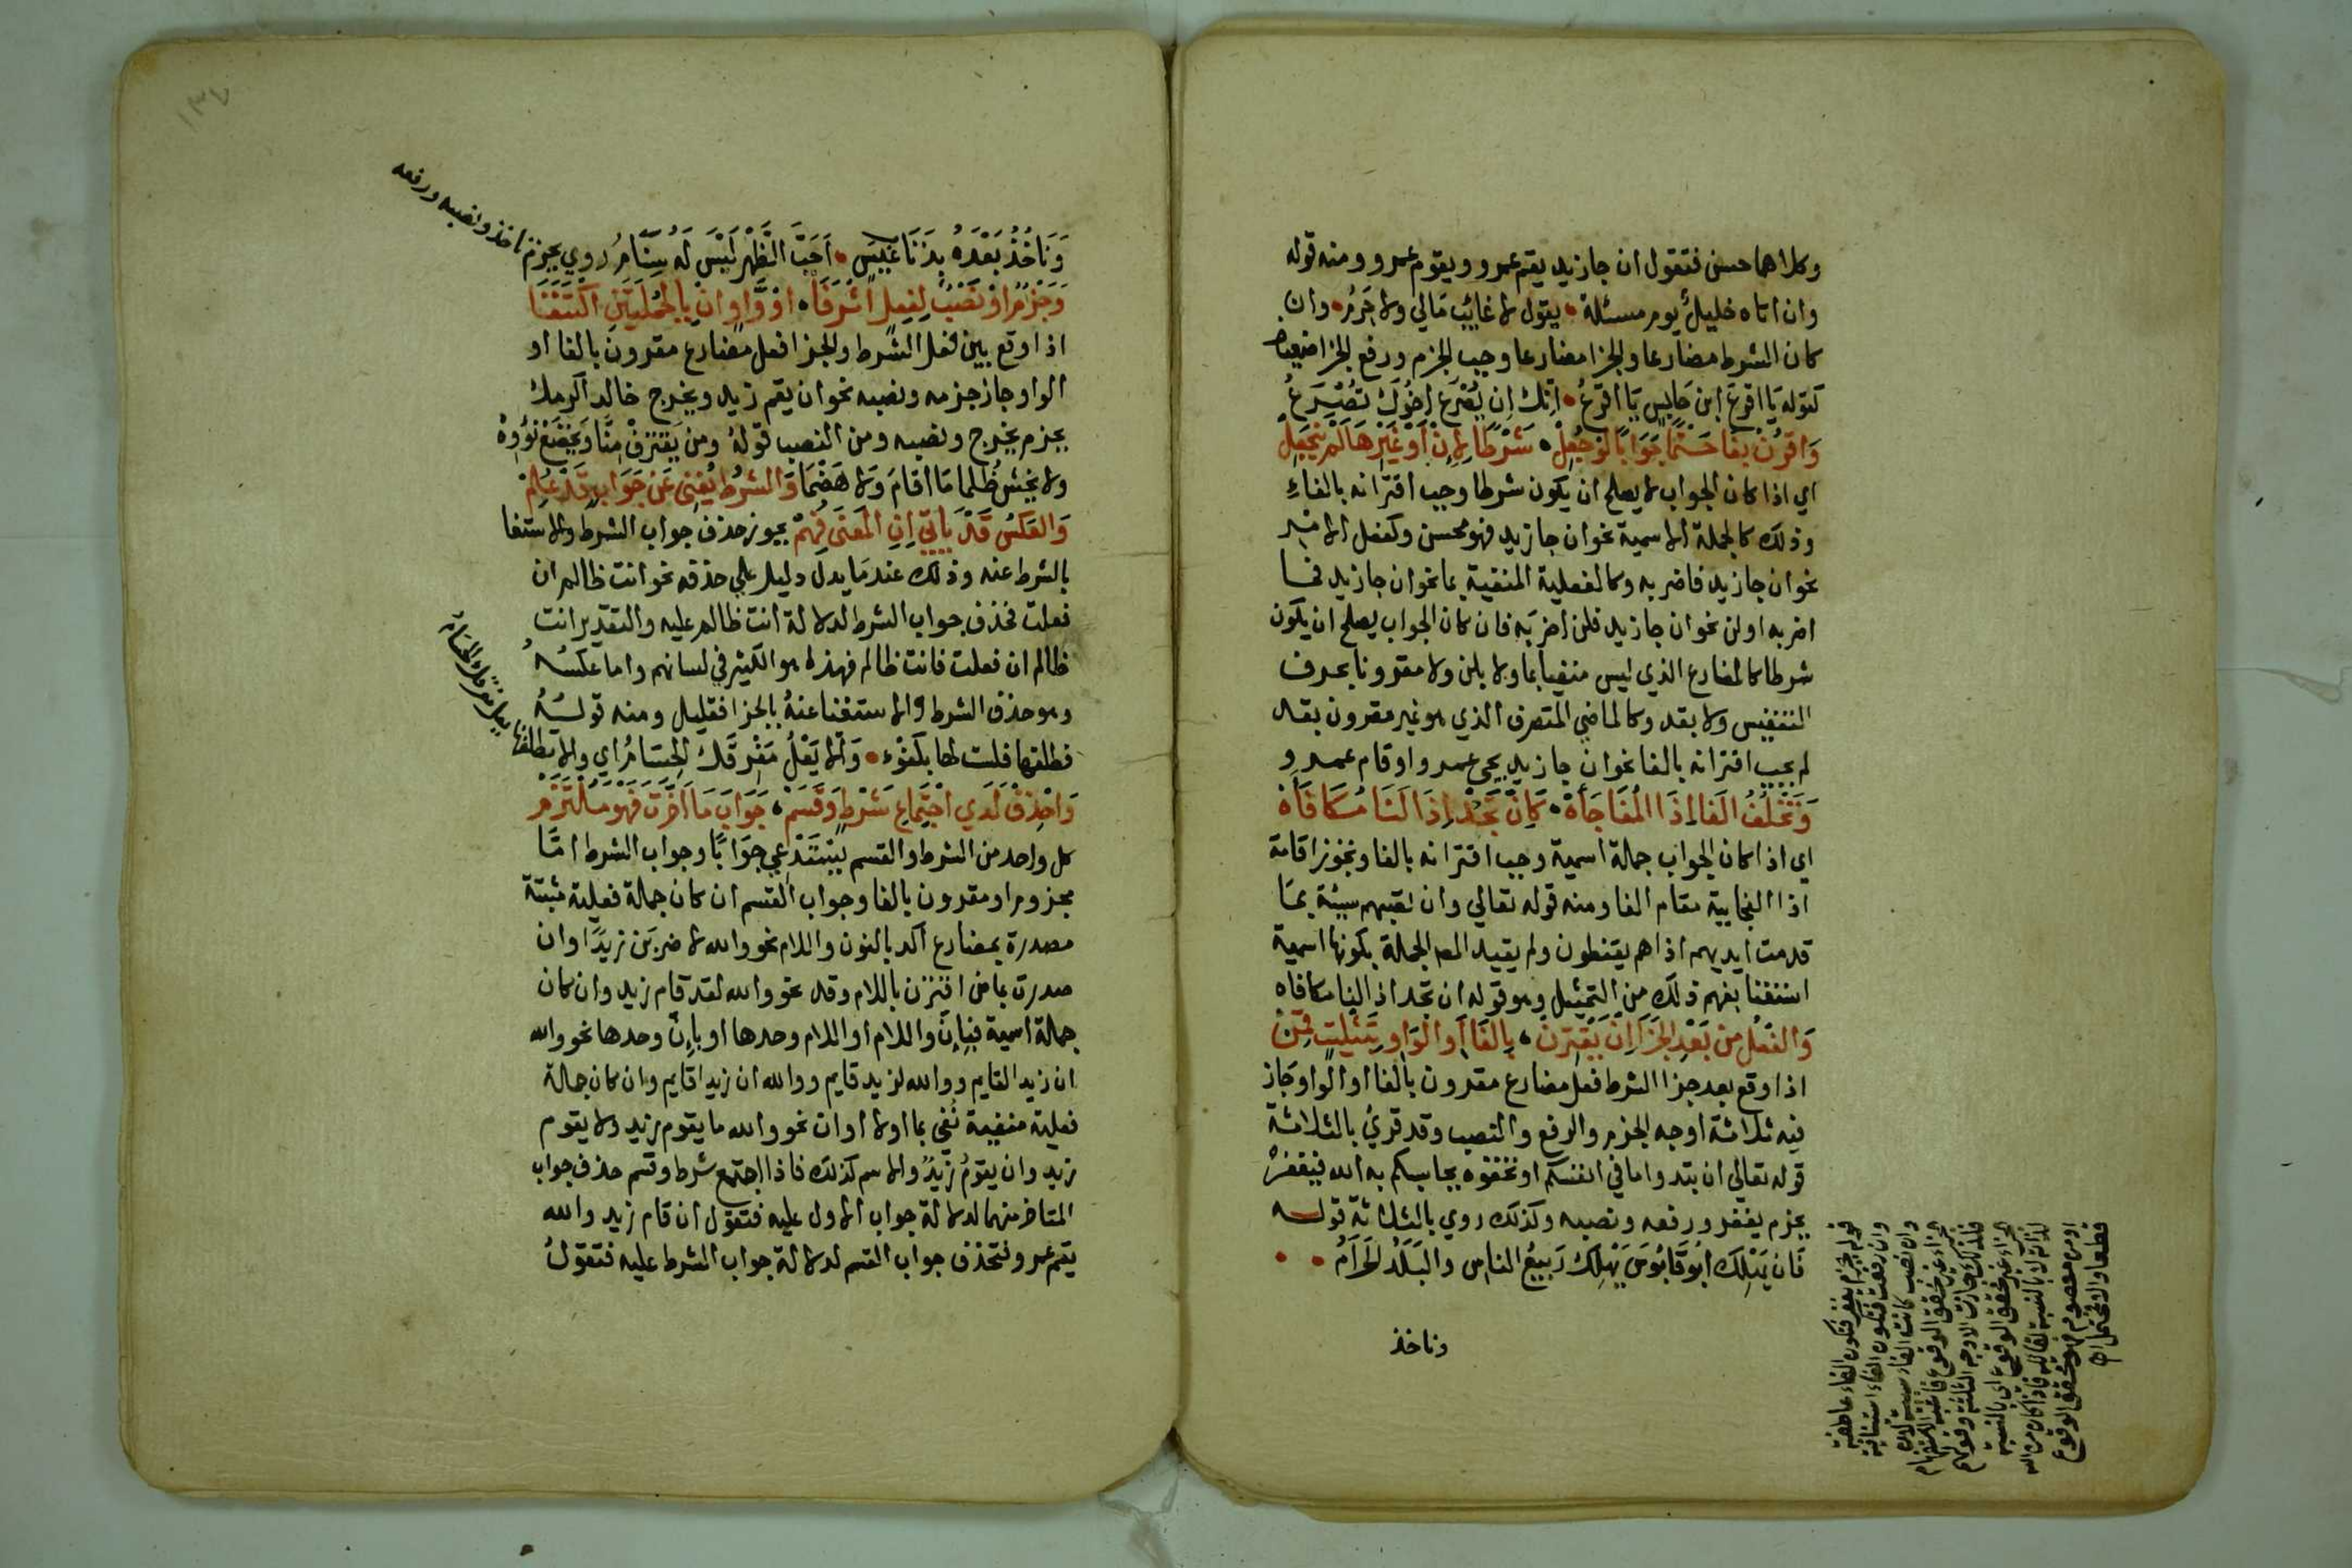 وكلاهما حسن فتقول ان جا زيد يقم عمرو ويقوم عمرو ومنه قوله
وان اتاه خليل يوم مسئلة • يقول لا غائب مالي ولا حرم • وان
كان الشرط مضارعا والجزا مضارعا وجب الجزم ورفع الجزا ضعيف
كقوله يَا اقرَعُ ابنَ حَابِسٍ يَا اقرَعُ • اِنّك اِن يُصْرَع اَخُوكَ تُصْرَعُ
وَاقرُن بِفَا حَتمًا جَوَابًا لَو جُعِلْ • شَرطًا لِاِن اَوْ غَيْرِهَا لَمْ يَنْجَعِلْ
اي اذا كان الجواب لا يصلح ان يكون شرطا وجب اقترانه بالفاءِ
وذلك كالجملة الاسمية نحو ان جا زيد فهو محسن وكفعل الامر
نحو ان جا زيد فاضربه وكالفعلية المنفية بما نحو ان جا زيد فما
اضربه او لن نحو ان جا زيد فلن اضربَه فان كان الجواب يصلح ان يكون
شرطا كالمضارع الذي ليس منفيا بما ولا بلن ولا مقرونا بحرف
التنفيس ولا بقد وكالماضي المتصرف الذي هو غير مقرون بقد
لم يجب اقترانه بالفا نحو ان جا زيد يجي عمرو او قام عمرو
وَتَخْلُفُ الفَا اِذَا المُفَاجَأَهْ • كَاِنْ تَجُدْ اِذَا لَنَا مُكَافَأَهْ
اي اذا كان الجواب جملة اسمية وجب اقترانه بالفا ويجوز اقامة
اذا الفجايية مقام الفا ومنه قوله تعالي وان تصبهم سيئة بما
قدمت ايديهم اذا هم يقنطون ولم يقيد المص الجملة بكونها اسمية
استغنا بفهم ذلك من التمثيل وهو قوله ان تجد اذا لنا مكافاه
وَالفِعْلُ مِن بَعْدِ الجَزَا اِن يَقْتَرِنْ • بِالفَا اَوِ الوَاوِ بِتَثلِيثٍ قَمِنْ
اذا وقع بعد جزا الشرط فعل مضارع مقرون بالفا او الواو جَاز
فيه ثلاثة اوجه الجزم والرفع والنصب وقد قري بالثلاثة
قوله تعالي ان تبدوا ما في انفسكم او تخفوه يحاسبكم به الله فيغفرْ
بجزم يغفر ورفعه ونصبه وكذلك روي بالثلاثة قوله
فَان يَهْلِك اَبُو قَابُوسَ يَهْلِك رَبِيعُ الناسِ والبَلَدُ الحَرَامُ • •
وناخذ
قوله بجزم يغفر فتكون الفاء عاطفة
وان رفعت فتكون الفاء استئنافية
اومن معصوم فهو محقق الوقوع
قطعا والا فمحتمل اه
وَنَاخُذُ بَعْدَهُ بِذِنَابِ عَيْشٍ • اَجَبَّ الظَّهْرِ لَيْسَ لَهُ سَنَامُ روي بجزم ناخذ ونصبه ورفعه
وَجَزْمٌ اوْ نَصْبٌ لِفِعْلٍ اثْرَفَا • اوْ وَاوٍ انْ بِالجُمْلَتَيْنِ اكْتُنِفَا
اذا وقع بين فعل الشرط والجزا فعل مضارع مقرون بالفا او
الواو جاز جزمه ونصبه نحو ان يقم زيد ويخرج خالد اكرمك
بجزم يخرج ونصبه ومن النصب قولهُ ومن يَقْتَرِفْ مِنَّا وَيَخْضَعَ نُؤْوِهْ
ولا يخش ظُلما مَا اقامَ وَلا هَضْمَا وَالشَّرْطُ يُغْنِي عَن جَوَابٍ قَدْ عُلِمْ
وَالعَكْسُ قَدْ يَاتِي اِنِ المَعْنَى فُهِمْ يجوز حذف جواب الشرط والاستغنا
بالشرط عنه وذلك عندمَا يدل دليل علي حذفه نحو انت ظالم ان
فعلت فحذف جواب الشرط لدلالة انت ظالم عليه والتقدير انت
ظالم ان فعلت فانت ظالم فهذا هو الكثير في لسانهم واما عكسُهُ
وهو حذف الشرط والاستغنا عنهُ بالجزا فقليل ومنه قولُهُ
فطلقها فلست لها بكفْءٍ • وَاِلّا يَعْلُ مَفْرِقَكَ الحُسَامُ اي والا تطلقها يعل مفرقك الحسام
وَاحْذِفْ لَدَي اجْتِمَاعِ شَرْطٍ وَقَسَمْ • جَوَابَ مَا اَخَّرْتَ فَهْوَ مُلْتَزَمْ
كل واحد من الشرط والقسم يستدعي جوَابًا وجواب الشرط امَّا
مجزوم او مقرون بالفا وجواب القسم ان كان جملة فعلية مثبتة
مصدرة بمضارع اكد بالنون واللام نحو والله لاضربَن زيدًا وان
صدرت بماض اقترن باللام وقد نحو والله لقد قام زيد وان كان
جملة اسمية فبإنّ واللام او اللام وحدها او بإنّ وحدها نحو والله
ان زيدا لقايم ووالله لزيد قايم ووالله ان زيدا قايم وان كان جملة
فعلية منفية نُفي بما او لا او ان نحو والله ما يقوم زيد ولا يقوم
زيد وان يقومُ زيدٌ والاسم كذلك فاذا اجتمع شرط وقسم حذف جواب
المتاخر منهما لدلالة جواب الاول عليه فتقول ان قام زيد والله
يقم عمرو فتحذف جواب القسم لدلالة جواب الشرط عليه فتقولُ